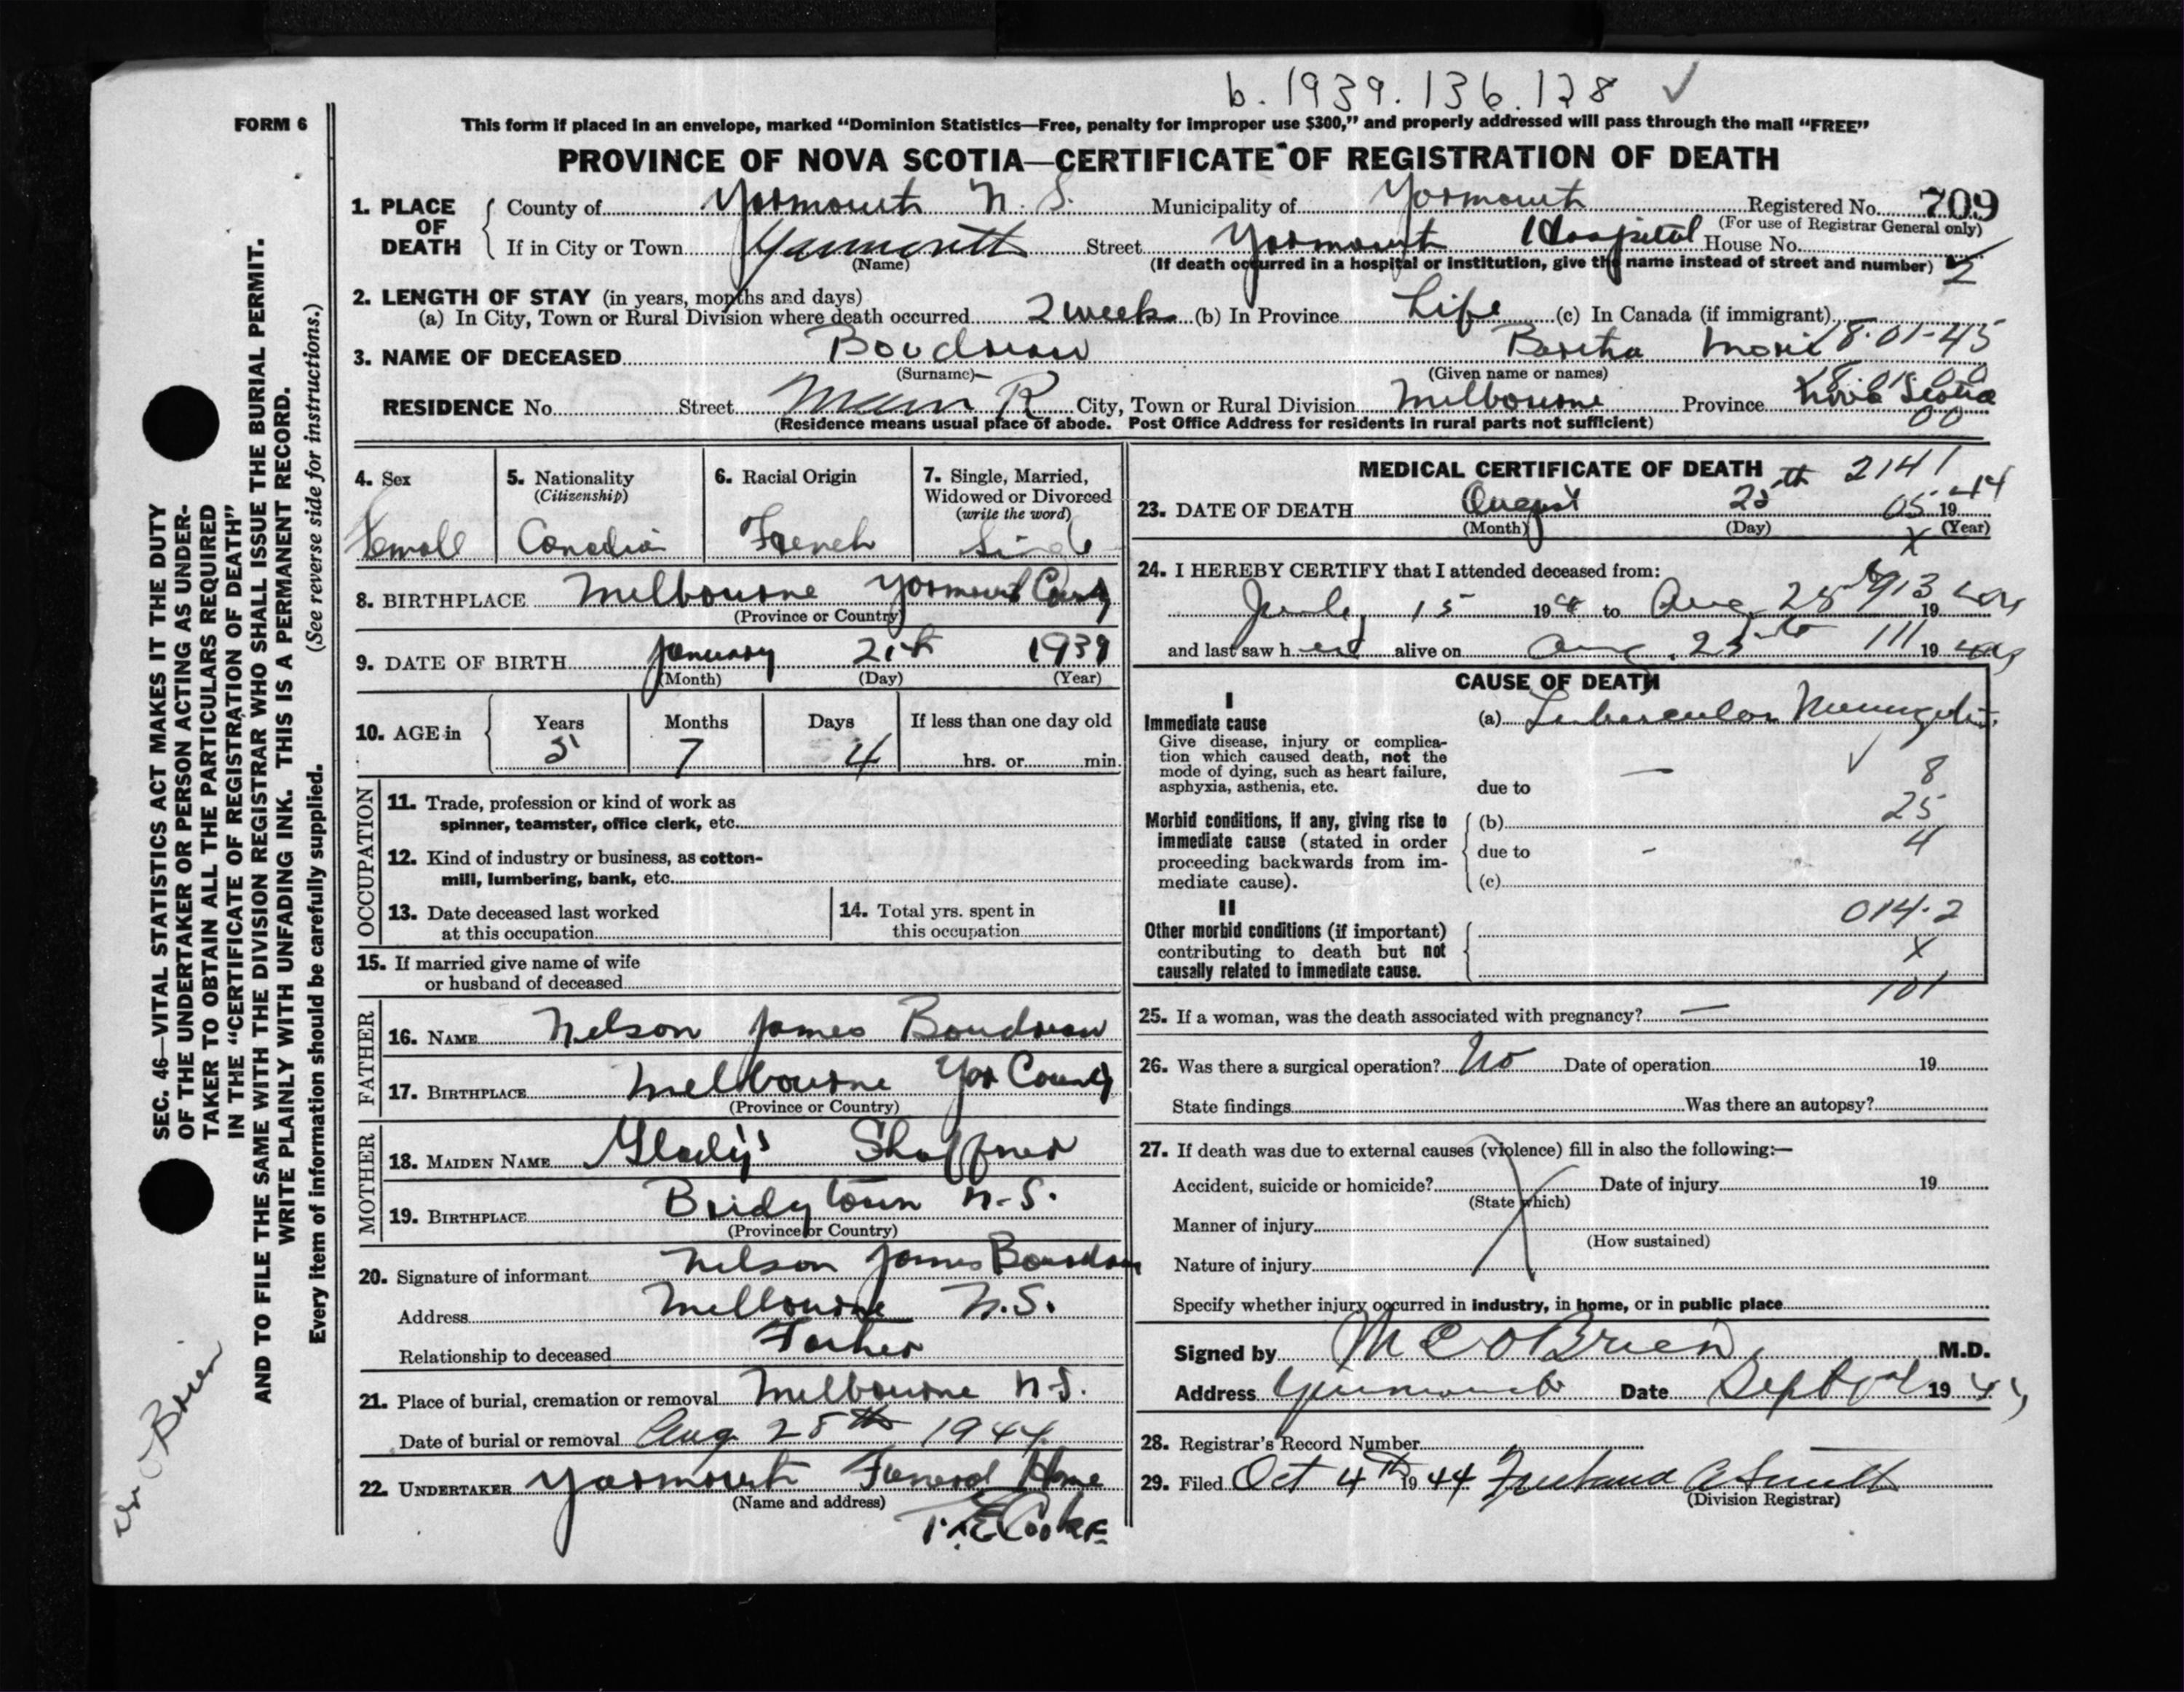 b. 1939. 136. 128 ✓
FORM 6
This form if placed in an envelope, marked “Dominion Statistics—Free, penalty for improper use $300,” and properly addressed will pass through the mail “FREE”
PROVINCE OF NOVA SCOTIA—CERTIFICATE OF REGISTRATION OF DEATH
1. PLACE OF DEATH
County of Yarmouth N. S. Municipality of Yarmouth Registered No. 709
(For use of Registrar General only)
If in City or Town Yarmouth Street Yarmouth Hospital House No.
(Name) (If death occurred in a hospital or institution, give the name instead of street and number) 2
2. LENGTH OF STAY (in years, months and days)
(a) In City, Town or Rural Division where death occurred 2 weeks (b) In Province Life (c) In Canada (if immigrant)
3. NAME OF DECEASED Boudreau Bertha Marie 18-01-45
(Surname) (Given name or names)
RESIDENCE No. Street Main R City, Town or Rural Division Melbourne Province Nova Scotia
00
(Residence means usual place of abode. Post Office Address for residents in rural parts not sufficient)
4. Sex
Female
5. Nationality
(Citizenship)
Canadian
6. Racial Origin
French
7. Single, Married,
Widowed or Divorced
(write the word)
Single
8. BIRTHPLACE Melbourne Yarmouth County
(Province or Country)
9. DATE OF BIRTH January 21st 1939
(Month) (Day) (Year)
10. AGE in Years Months Days If less than one day old
5 7 4 hrs. or min.
OCCUPATION
11. Trade, profession or kind of work as
spinner, teamster, office clerk, etc.
12. Kind of industry or business, as cotton-
mill, lumbering, bank, etc.
13. Date deceased last worked
at this occupation
14. Total yrs. spent in
this occupation
15. If married give name of wife
or husband of deceased
FATHER
16. NAME Nelson James Boudreau
17. BIRTHPLACE Melbourne Yar County
(Province or Country)
MOTHER
18. MAIDEN NAME Gladys Shaffner
19. BIRTHPLACE Bridgtown N.S.
(Province or Country)
20. Signature of informant Nelson James Boudreau
Address Melbourne N.S.
Relationship to deceased Father
21. Place of burial, cremation or removal Melbourne N.S.
Date of burial or removal Aug. 28th 1944
22. UNDERTAKER Yarmouth Funeral Home
(Name and address)
Cooke
MEDICAL CERTIFICATE OF DEATH 2141
23. DATE OF DEATH August 25th 05 1944
(Month) (Day) (Year)
X
24. I HEREBY CERTIFY that I attended deceased from:
15 19 to Aug 25 19
and last saw her alive on Aug. 25th 111 19
CAUSE OF DEATH
I
Immediate cause
Give disease, injury or complica-
tion which caused death, not the
mode of dying, such as heart failure,
asphyxia, asthenia, etc.
(a) Tubercular Meningitis
✓ 8
due to —
25
Morbid conditions, if any, giving rise to
immediate cause (stated in order
proceeding backwards from im-
mediate cause).
(b)
due to - 4
(c)
II
Other morbid conditions (if important)
contributing to death but not
causally related to immediate cause.
014.2
X
101
25. If a woman, was the death associated with pregnancy? —
26. Was there a surgical operation? No Date of operation 19
State findings Was there an autopsy?
27. If death was due to external causes (violence) fill in also the following:—
Accident, suicide or homicide? Date of injury 19
(State which)
Manner of injury
(How sustained)
Nature of injury
Specify whether injury occurred in industry, in home, or in public place
Signed by M C O'Brien M.D.
Address Yarmouth Date Sept 19
28. Registrar's Record Number
29. Filed Oct 4th 1944
(Division Registrar)
SEC. 46—VITAL STATISTICS ACT MAKES IT THE DUTY
OF THE UNDERTAKER OR PERSON ACTING AS UNDER-
TAKER TO OBTAIN ALL THE PARTICULARS REQUIRED
IN THE “CERTIFICATE OF REGISTRATION OF DEATH”
AND TO FILE THE SAME WITH THE DIVISION REGISTRAR WHO SHALL ISSUE THE BURIAL PERMIT.
WRITE PLAINLY WITH UNFADING INK. THIS IS A PERMANENT RECORD.
Every item of information should be carefully supplied. (See reverse side for instructions.)
Dr O'Brien